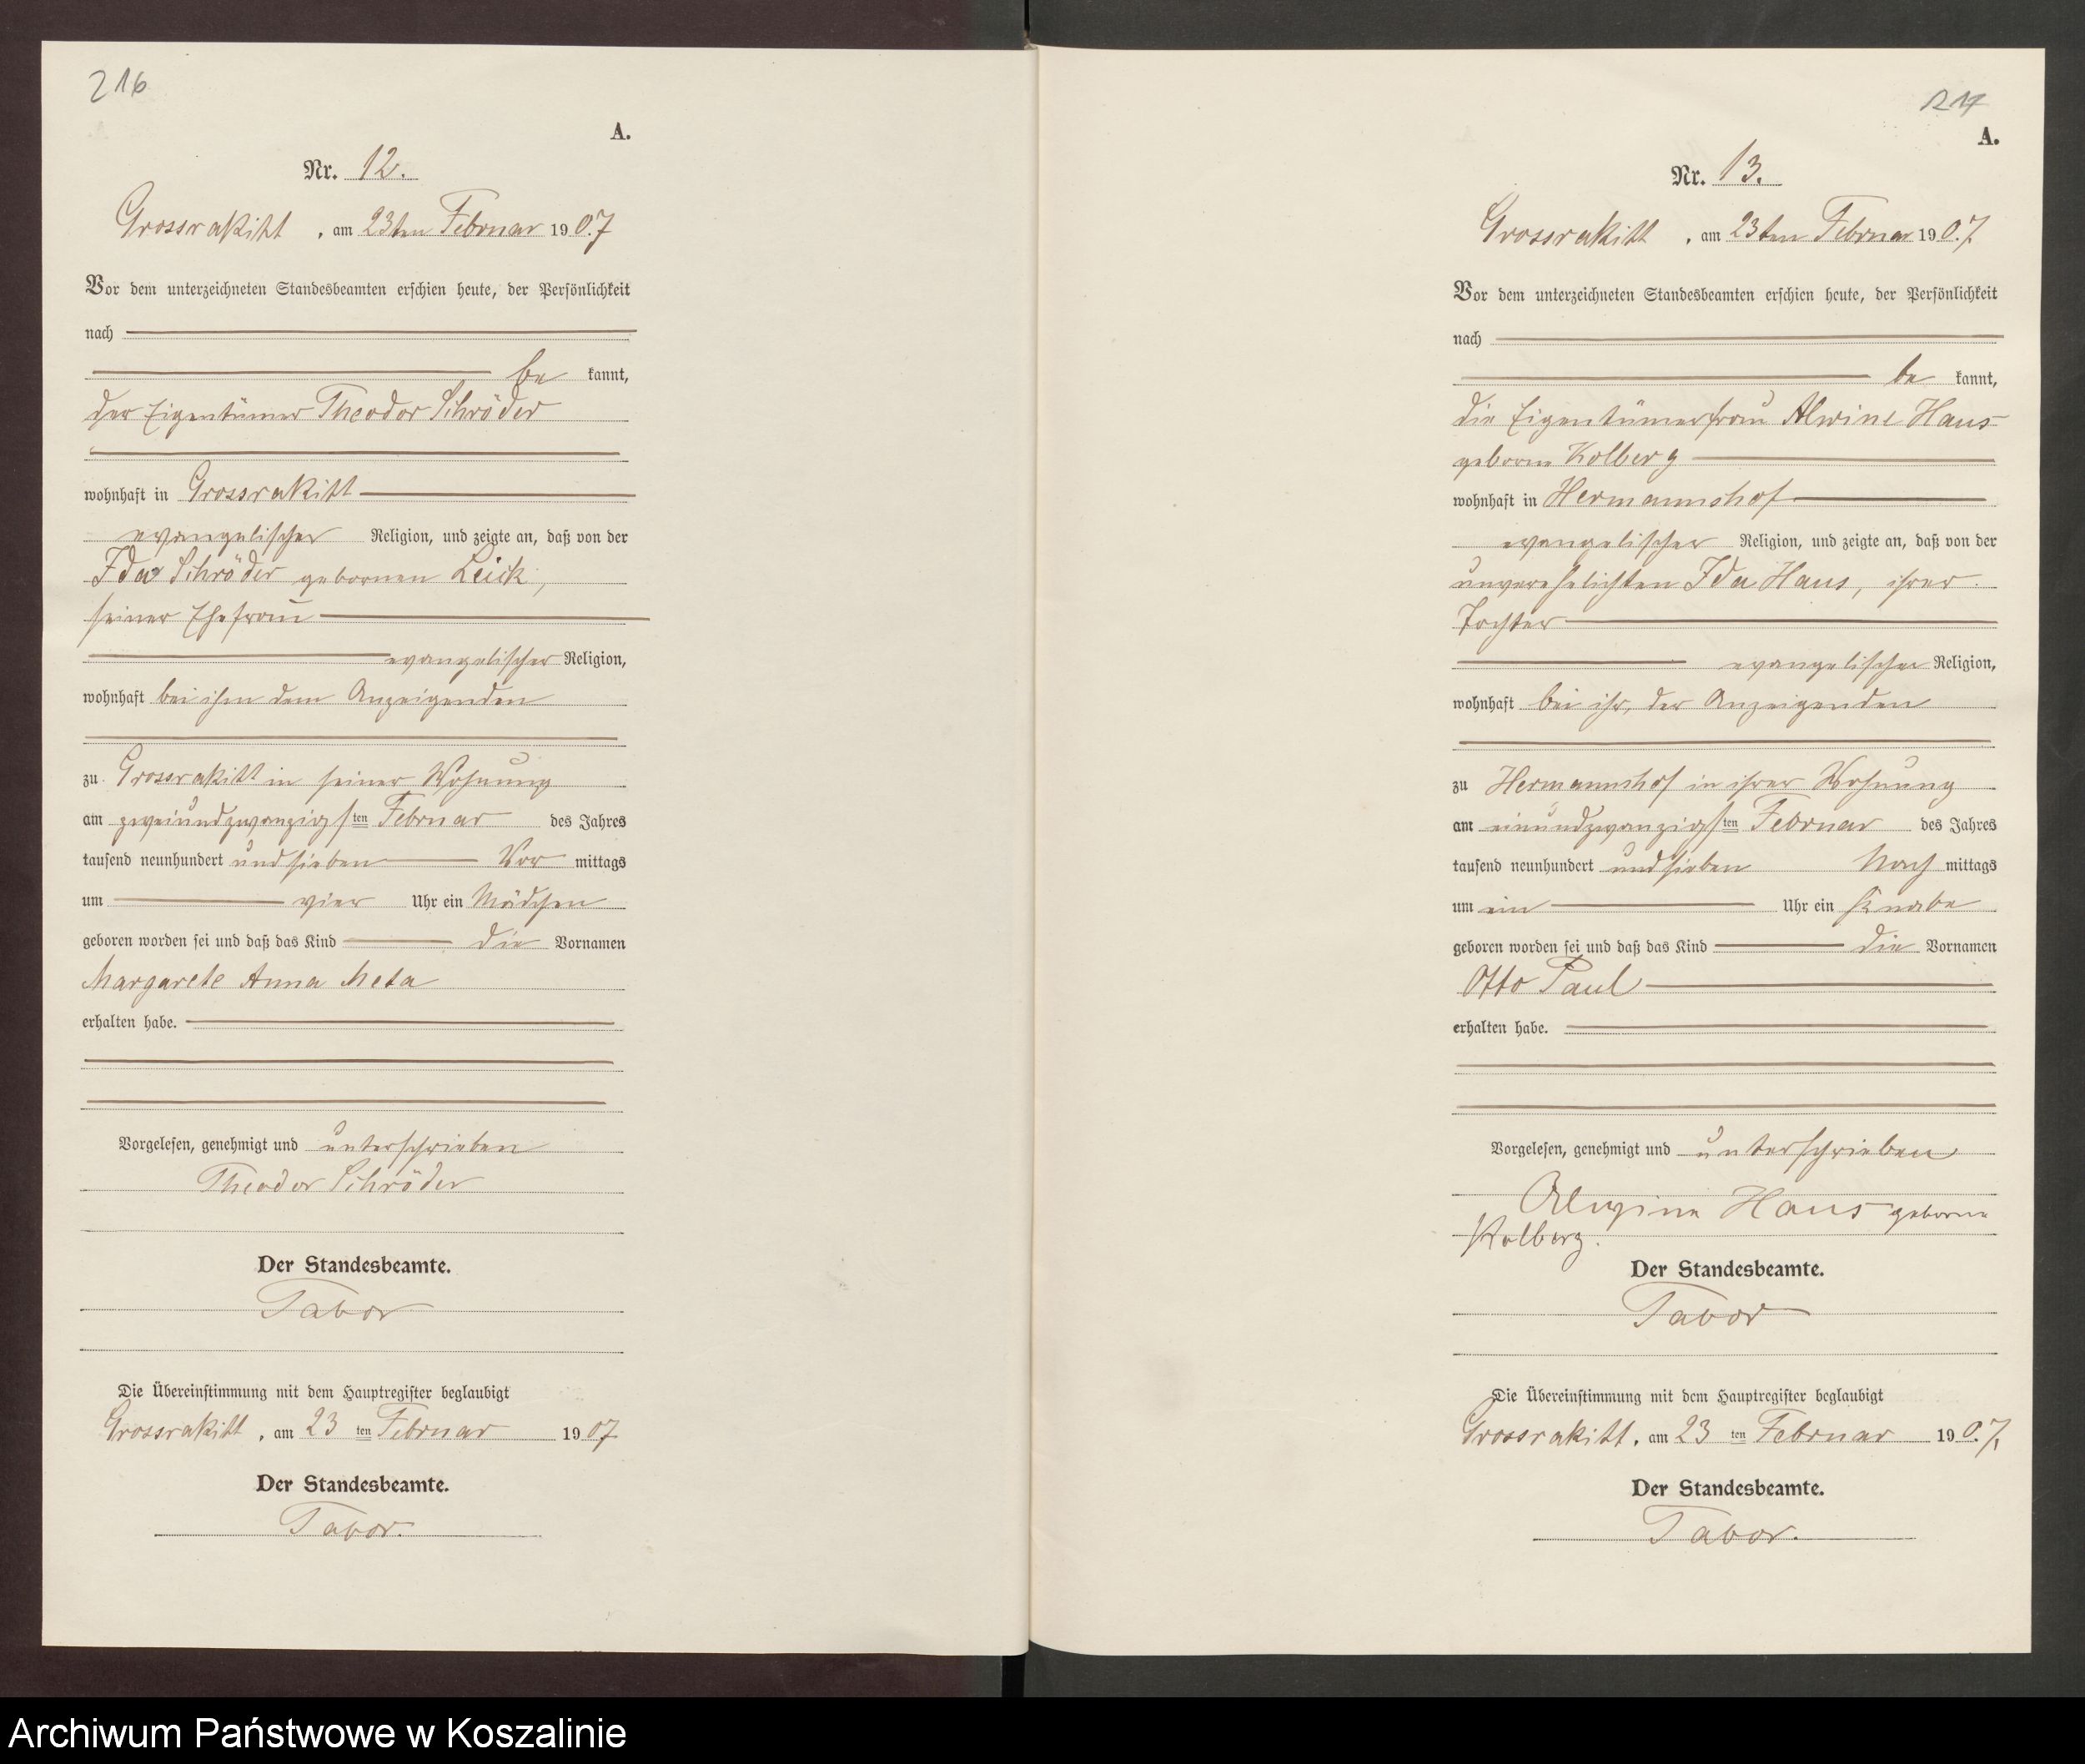 216
A.
Nr. 12.
Grossrakitt, am 23ten Februar 1907
Vor dem unterzeichneten Standesbeamten erschien heute, der Persönlichkeit
nach
be kannt,
der Eigentümer Theodor Schröder
wohnhaft in Grossrakitt
evangelischer Religion, und zeigte an, daß von der
Ida Schröder gebornen Leick,
seiner Ehefrau
evangelischer Religion,
wohnhaft bei ihm dem Anzeigenden
zu Grossrakitt in seiner Wohnung
am zweiundzwanzigsten Februar des Jahres
tausend neunhundert und sieben Vor mittags
um vier Uhr ein Mädchen
geboren worden sei und daß das Kind die Vornamen
Margarete Anna Meta
erhalten habe.
Vorgelesen, genehmigt und unterschrieben
Theodor Schröder
Der Standesbeamte.
Tabor
Die Übereinstimmung mit dem Hauptregister beglaubigt
Grossrakitt, am 23 ten Februar 1907
Der Standesbeamte.
Tabor.
217
A.
Nr. 13.
Grossrakitt, am 23ten Februar 1907.
Vor dem unterzeichneten Standesbeamten erschien heute, der Persönlichkeit
nach
be kannt,
die Eigentümerfrau Alwine Haus
geborne Kolberg
wohnhaft in Hermannshof
evangelischer Religion, und zeigte an, daß von der
unverehelichten Ida Haus, ihrer
Tochter
evangelischer Religion,
wohnhaft bei ihr, der Anzeigenden
zu Hermannshof in ihrer Wohnung
am einundzwanzigsten Februar des Jahres
tausend neunhundert und sieben Nach mittags
um ein Uhr ein Knabe
geboren worden sei und daß das Kind die Vornamen
Otto Paul
erhalten habe.
Vorgelesen, genehmigt und unterschrieben
Alwine Haus geborne
Kolberg.
Der Standesbeamte.
Tabor
Die Übereinstimmung mit dem Hauptregister beglaubigt
Grossrakitt, am 23 ten Februar 1907.
Der Standesbeamte.
Tabor.
Archiwum Państwowe w Koszalinie